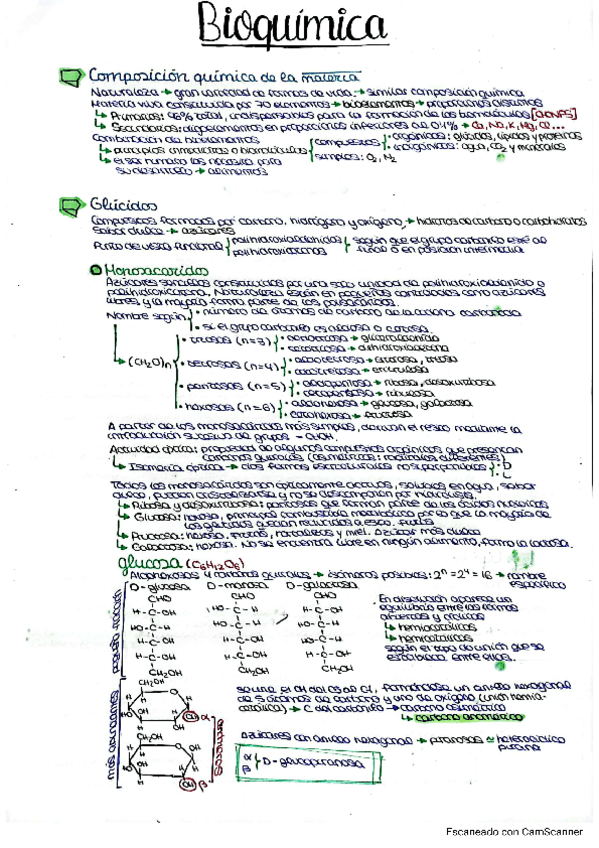 Bioquímica
Composición química de la materia
Naturaleza → gran variedad de formas de vida → similar composición química
Materia viva constituida por 70 elementos → bioelementos → proporciones distintas
↳ Primarios: 96% total, indispensables para la formación de las biomoléculas [CHONPS]
↳ Secundarios: bioelementos en proporciones inferiores al 0.1% → Ca, Na, K, Mg, Cl...
Combinación de bioelementos
↳ principios inmediatos o biomoléculas
compuestos
orgánicos: glúcidos, lípidos y proteínas
inorgánicos: agua, CO2 y minerales
simples: O2, N2
↳ el ser humano los necesita para
su desarrollo → alimentos
Glúcidos
Compuestos formados por carbono, hidrógeno y oxígeno → hidratos de carbono o carbohidratos
Sabor dulce → azúcares
Punto de vista funcional
polihidroxialdehídos
polihidroxicetonas
según que el grupo carbonilo esté al
final o en posición intermedia
Monosacáridos
Azúcares sencillos constituidos por una sola unidad de polihidroxialdehído o
polihidroxicetona. Naturaleza están en pequeñas cantidades como azúcares
libres, y la mayoría forma parte de los polisacáridos.
Nombre según
· número de átomos de carbono de la cadena carbonada
· si el grupo carbonilo es aldosa o cetosa.
(CH2O)n
· triosas (n=3)
· aldotriosa → gliceraldehído
· cetotriosa → dihidroxiacetona
· tetrosas (n=4)
· aldotetrosa → eritrosa, treosa
· cetotetrosa → eritrulosa
· pentosas (n=5)
· aldopentosa → ribosa, desoxirribosa
· cetopentosa → ribulosa
· hexosas (n=6)
· aldohexosa → glucosa, galactosa
· cetohexosa → fructosa
A partir de los monosacáridos más simples, derivan el resto mediante la
introducción sucesiva de grupos -CHOH.
Actividad óptica: propiedad de algunos compuestos orgánicos que presentan
carbonos quirales (asimétricos: radicales diferentes)
↳ Isomería óptica → dos formas estructurales no superponibles
· D
· L
Todos los monosacáridos son ópticamente activos, solubles en agua, sabor
dulce, pueden cristalizarse y no se descomponen por hidrólisis.
↳ Ribosa y desoxirribosa: pentosas que forman parte de los ácidos nucleicos
↳ Glucosa: hexosa, principal combustible metabólico por lo que la mayoría de
los glúcidos quedan reducidos a esta.
↳ Fructosa: hexosa, frutas, hortalizas y miel. Azúcar más dulce
↳ Galactosa: hexosa. No se encuentra libre en ningún alimento, forma la lactosa.
glucosa (C6H12O6)
Aldohexosas 4 carbonos quirales → isómeros posibles: 2ⁿ = 2⁴ = 16 → nombre
específico
D-glucosa D-manosa D-galactosa
CHO CHO CHO
H-C-OH HO-C-H H-C-OH
HO-C-H HO-C-H HO-C-H
H-C-OH H-C-OH HO-C-H
H-C-OH H-C-OH H-C-OH
CH2OH CH2OH CH2OH
En disolución aparece un
equilibrio entre las formas
abiertas y cíclicas
↳ hemiacetálicas
↳ hemicetálicas
según el tipo de unión que se
establezca entre ellas.
más abundantes
CH2OH
OH α
CH2OH
OH β
anómeros
Se une el OH del C5 al C1, formándose un anillo hexagonal
de 5 átomos de carbono y uno de oxígeno (unión hemia-
cetálica) → C del carbonilo → carbono asimétrico
↳ carbono anomérico
Azúcares con anillo hexagonal → piranosas ≃ heterocíclico
pirano
α
β
D-glucopiranosa
Escaneado con CamScanner